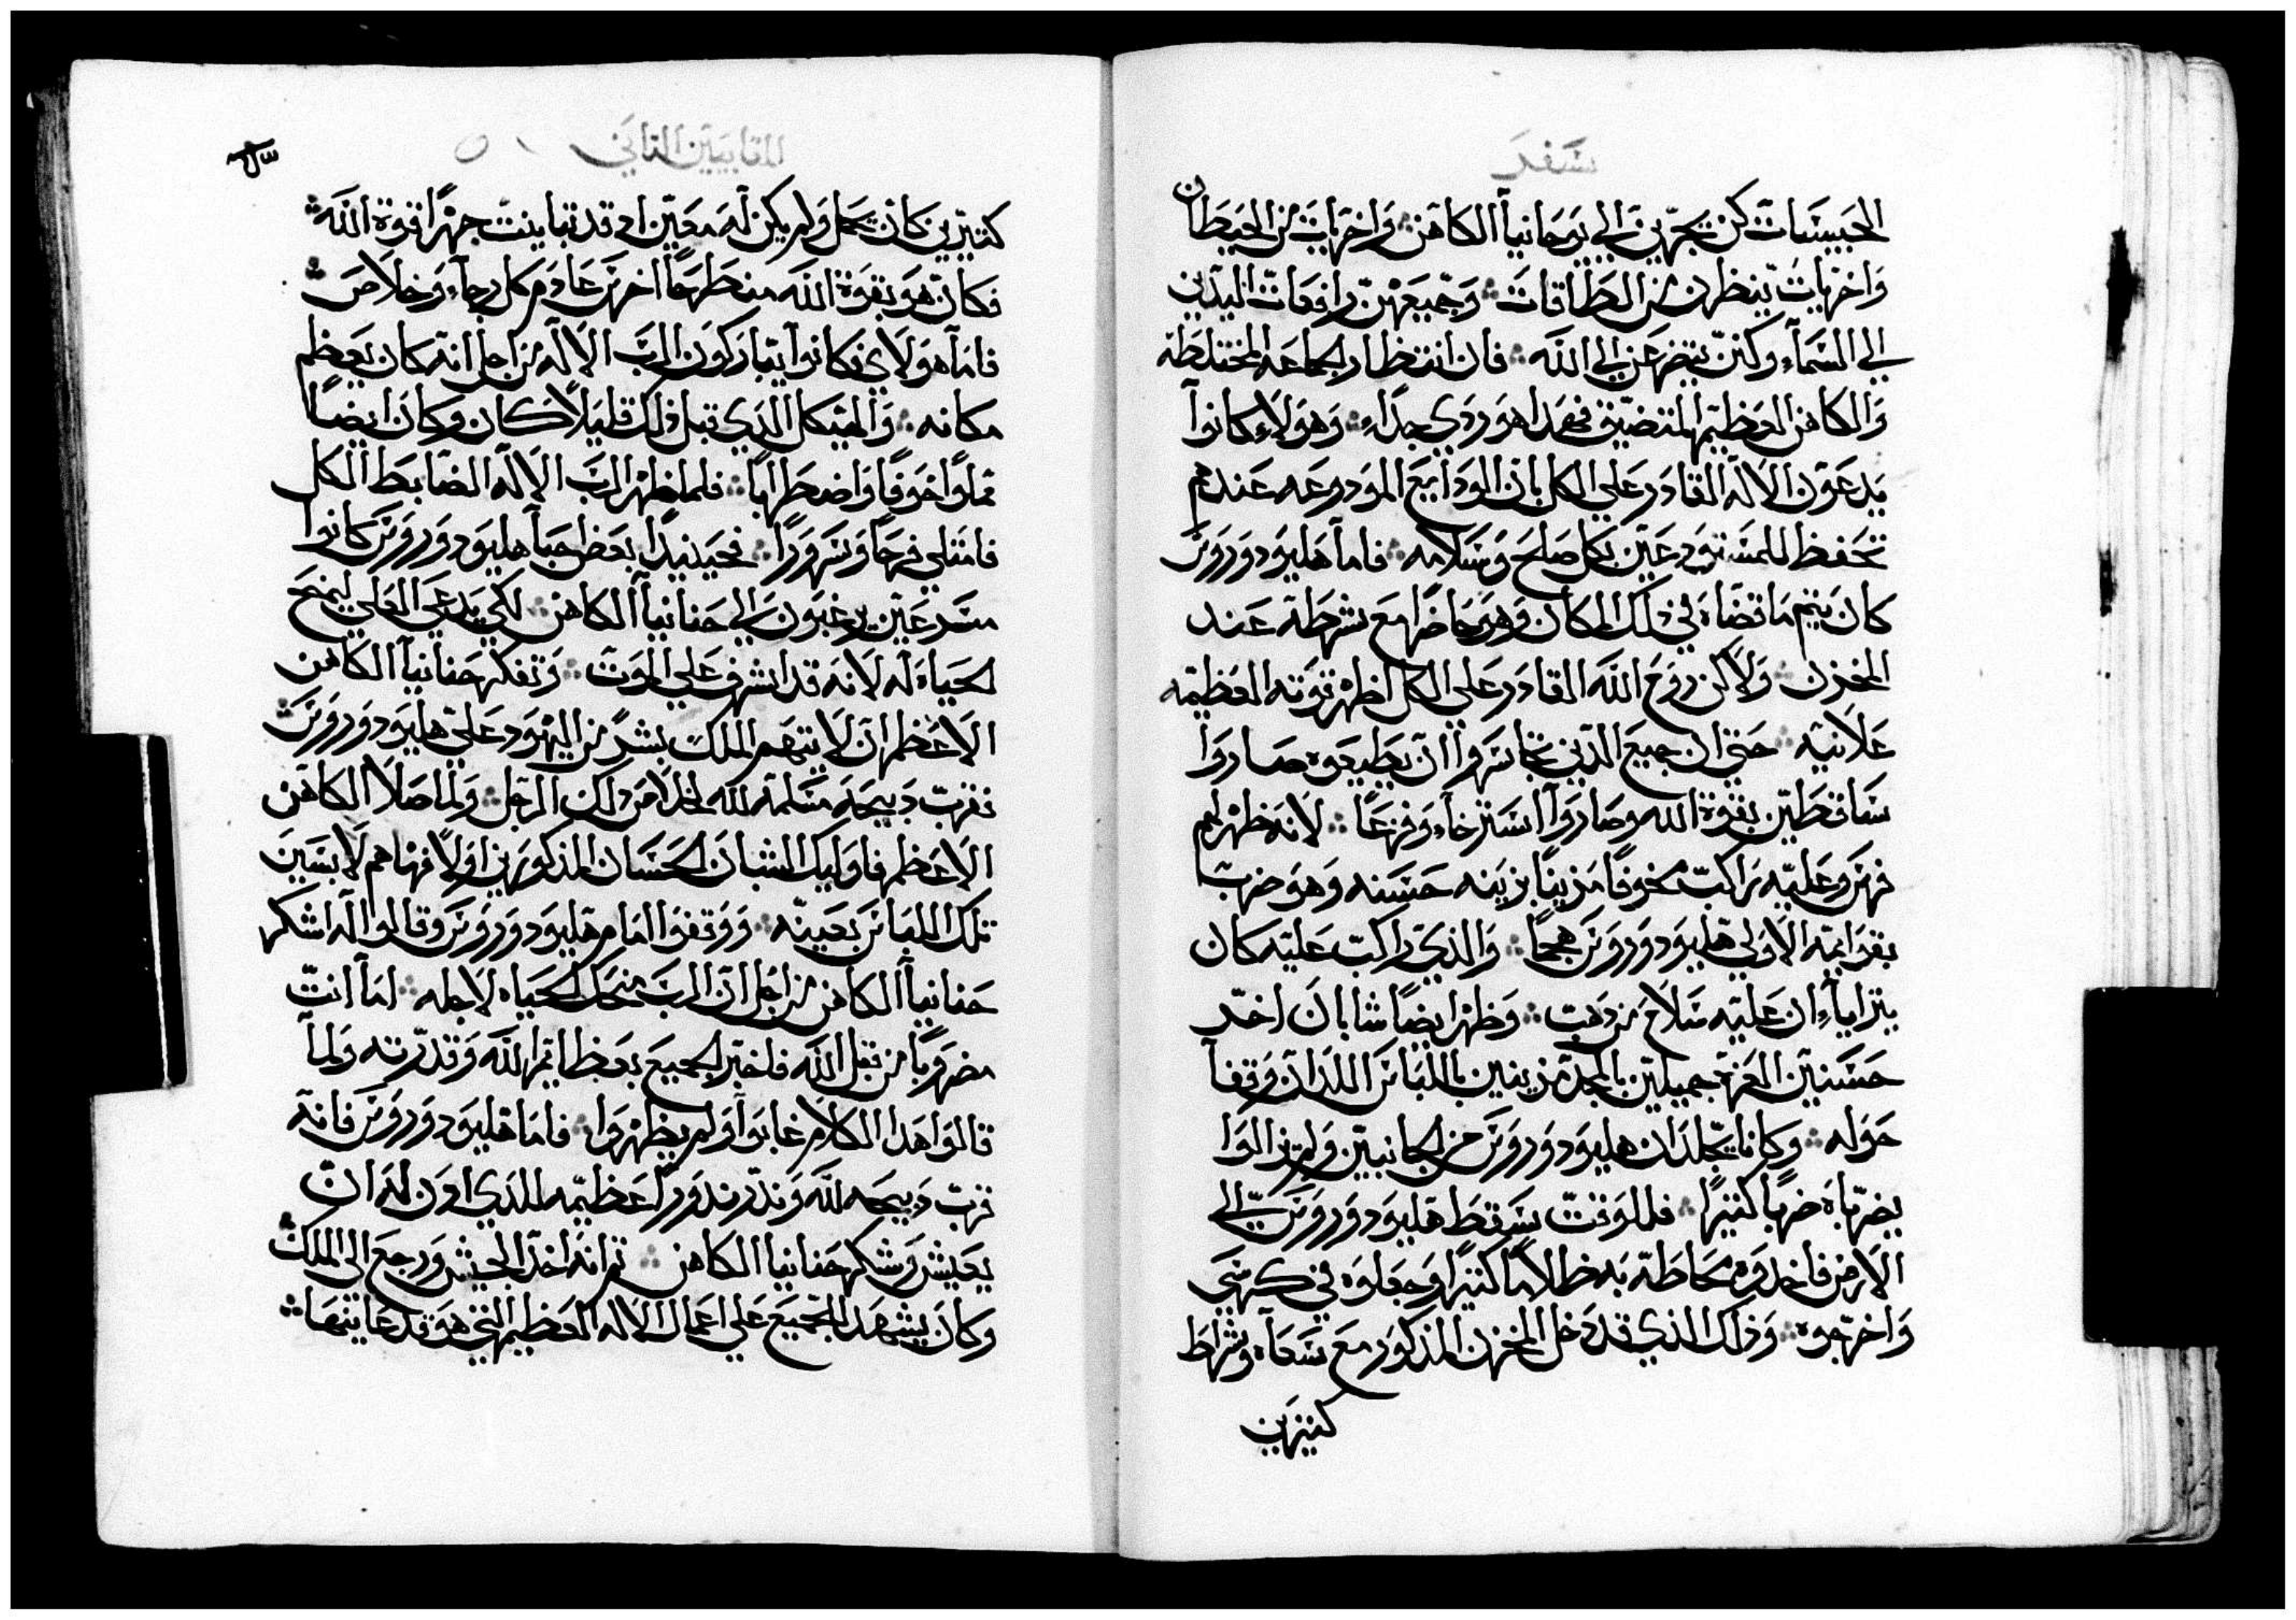 سفر
الحبيسات كن يجرين الي يوحانيا الكاهن واخريات من الحيطان
واخريات ينظرن من الطاقات وجميعهن رافعات اليدين
الي السمآء وكن يتضرعن الي الله فان انتظار الجماعه المختلطه
والكاهن العظيم المتضيق فهدا هو ردي جداً وهولاء كانوا
يدعون الاله القادر علي الكل بان الودايع المودوعه عندهم
تحفظ للمستودعين بكل صلح وسلامه فاما هليودوروس
كان يتم ما قضاه في دلك المكان وهو حاضراً مع شرطة عند
المخزن ولاكن روح الله القادر علي الكل اظهر قوته العظيمه
علانيه حتي ان جميع الدين تجاسروا ان يطيعوه صاروا
ساقطين بقوة الله وصاروا استرخاء وفزعاً لانه ظهر لهم
فرس وعليه راكب مخوفاً مزيناً بزينه حسنه وهو ضرب
بقوايمه الاولي هليودوروس هجماً والذي راكب عليه كان
يترايا ان عليه سلاح من دهب وظهر ايضاً شابان اخر
حسنين القوة جميلين بالمجد مزينين باللباس اللدان وقفا
حوله وكانا يجلدان هليودوروس من الجانبين ولم يزالوا
يضرباه ضرباً كثيراً فللوقت سقط هليودوروس الي
الارض فاخدوه محاطة به ظلاماً كثيراً وجعلوه في كرسي
واخرجوه وذلك الذي قد دخل المخزن المذكور مع سعاه وشراط
كثيرين
المقابيين التاني ٥
كثيرين كان يحمل ولم يكن له معين اد قد تباينت جهراً قوة الله
فكان هو بقوة الله منطرحاً اخرس عادم كل رجاء وخلاص
فاما هولاي فكانوا يتباركون الرب الاله من اجل انه كان يعظم
مكانه والهيكل الدي قبل دلك قليلاً كان وكان ايضاً
مملواً خوفاً واضطراباً فلما ظهر الرب الاله الضابط الكل
فامتلي فرحاً وسروراً فحينيداً بعض احباً هليودوروس كانوا
مسرعين يرغبون الي حنانيا الكاهن لكي يدعي العلي ليمنح
الحياه له لانه قد اشرف علي الموت وتفكر حنانيا الكاهن
الاعظم ان لا يتهم الملك بشر من اليهود علي هليودوروس
فقرب دبيحه مسلمه لله لخلاص دلك الرجل ولما صلا الكاهن
الاعظم فاوليك الشبان الحسان المذكورين اولاً فهاهم لابسين
تلك اللباس بعينه ووقفوا امام هليودوروس وقالوا له اشكر
حنانيا الكاهن من اجل ان الرب منحك الحياه لاجله اما انت
مضروباً من قبل الله فاخبر الجميع بعظايم الله وقدرته ولما
قالوا هدا الكلام غابوا ولم يظهروا فاما هليودوروس فانه
قرب دبيحه لله وندر ندوراً عظيمه للدي ادن له ان
يعيش وشكر حنانيا الكاهن تم انه اخد الجيش ورجع الي الملك
وكان يشهد للجميع علي اعمال الاله العظيم التي هو قد عاينها